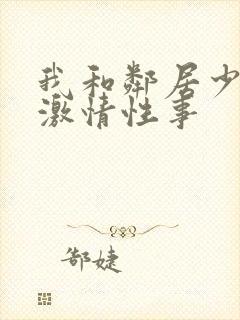 我和鄰居少
激情性事
郜婕